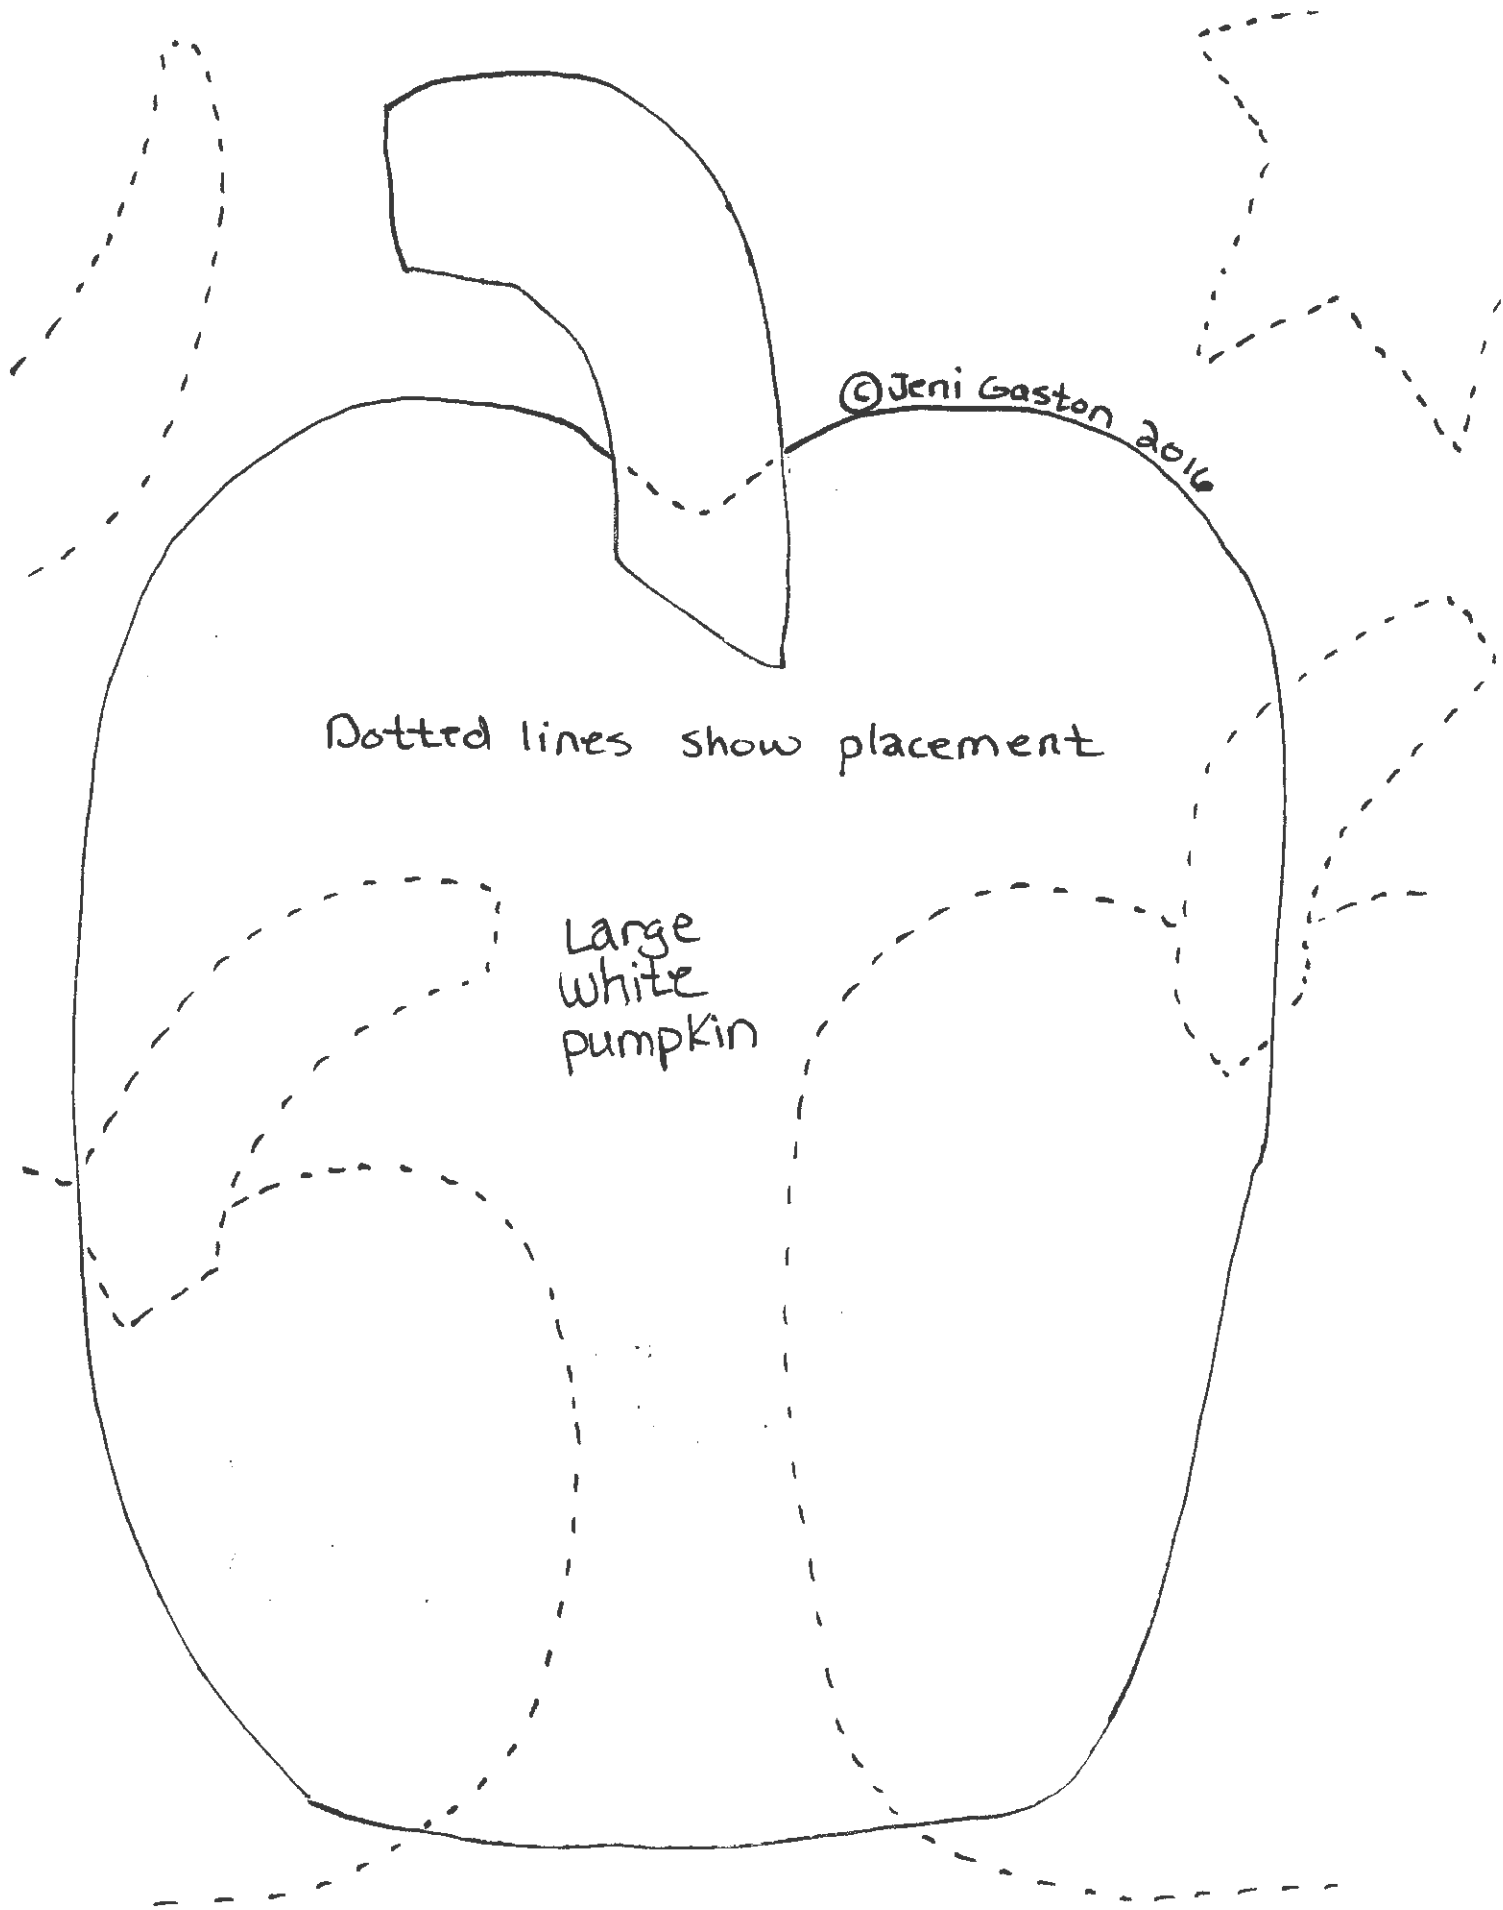 ©Jeni Gaston 2016
Dotted lines show placement
Large
white
pumpkin